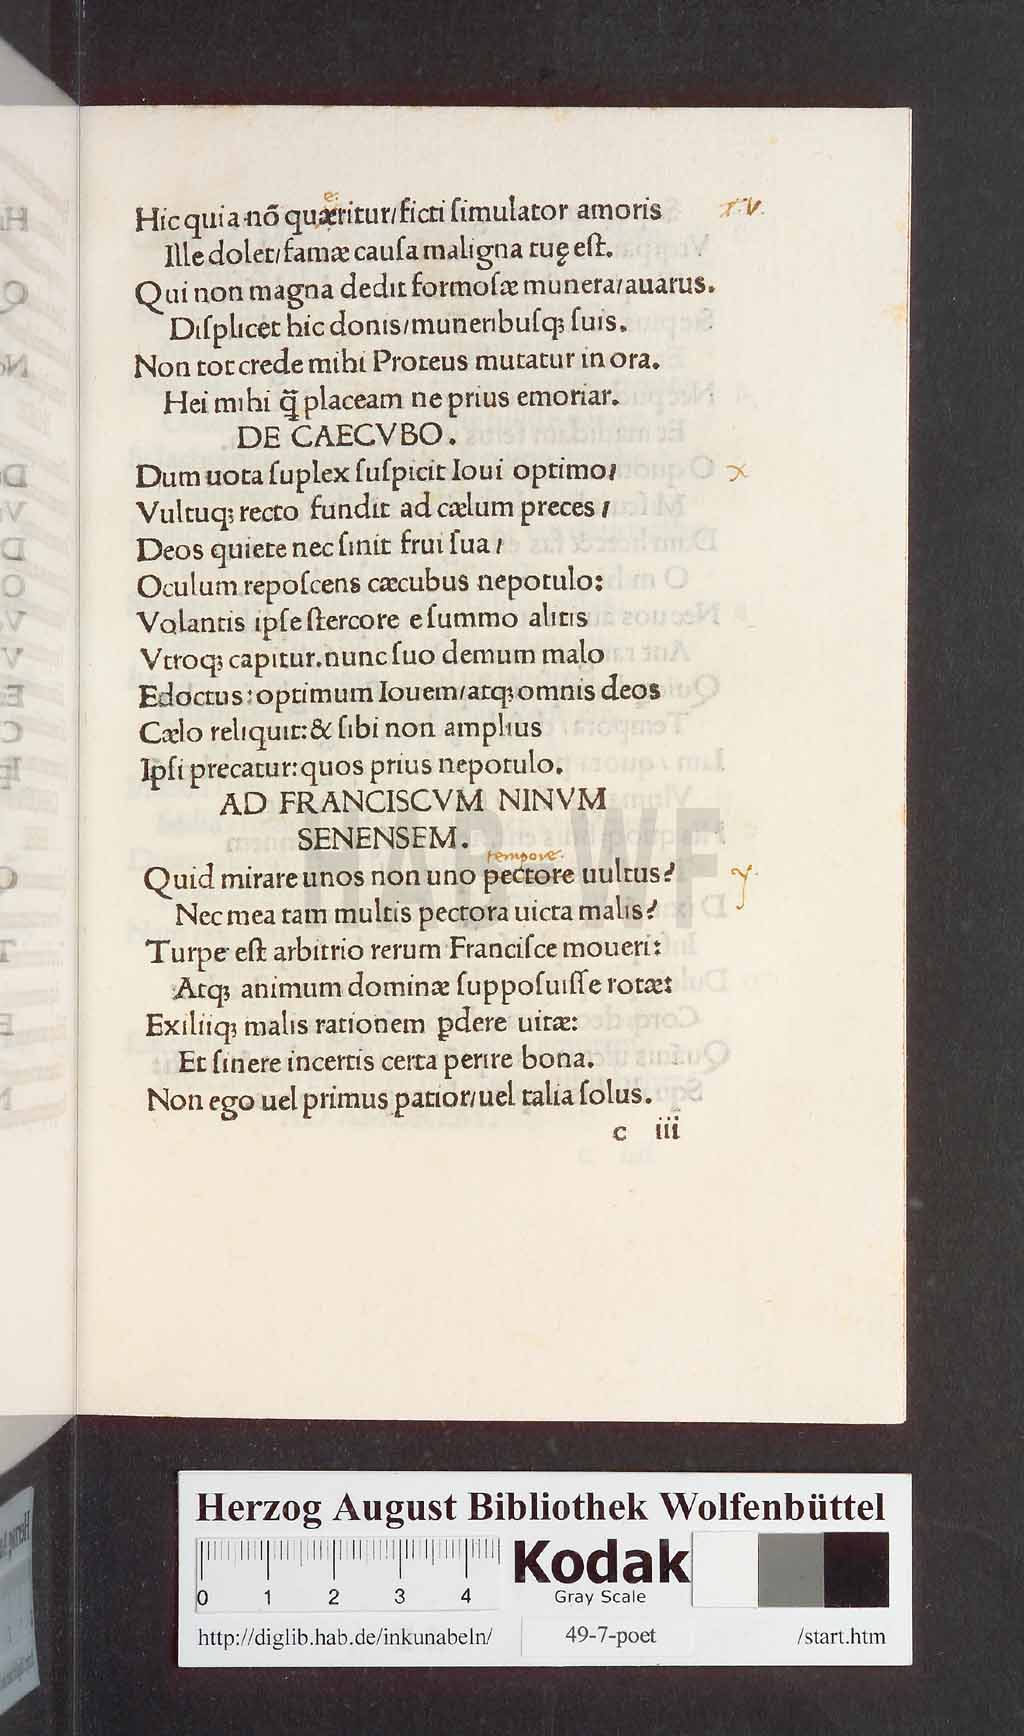 Hic quia nõ quæritur/ficti ſimulator amoris
Ille dolet/famæ cauſa maligna tuę eſt.
Qui non magna dedit formoſæ munera/auarus.
Diſplicet hic donis/muneribuſq; ſuis.
Non tot crede mihi Proteus mutatur in ora.
Hei mihi q̃ placeam ne prius emoriar.
DE CAECVBO.
Dum uota ſuplex ſuſpicit Ioui optimo/
Vultuq; recto fundit ad cælum preces/
Deos quiete nec ſinit frui ſua/
Oculum repoſcens cæcubus nepotulo:
Volantis ipſe ſtercore e ſummo alitis
Vtroq; capitur.nunc ſuo demum malo
Edoctus:optimum Iouem/atq; omnis deos
Cælo reliquit:& ſibi non amplius
Ipſi precatur:quos prius nepotulo.
AD FRANCISCVM NINVM
SENENSEM.
tempore
Quid mirare unos non uno pectore uultus?
Nec mea tam multis pectora uicta malis?
Turpe eſt arbitrio rerum Franciſce moueri:
Atq; animum dominæ ſuppoſuiſſe rotæ:
Exiliiq; malis rationem ꝑdere uitæ:
Et ſinere incertis certa perire bona.
Non ego uel primus patior/uel talia ſolus.
c iii
HAB-WF
Herzog August Bibliothek Wolfenbüttel
0 1 2 3 4
Kodak
Gray Scale
http://diglib.hab.de/inkunabeln/ 49-7-poet /start.htm